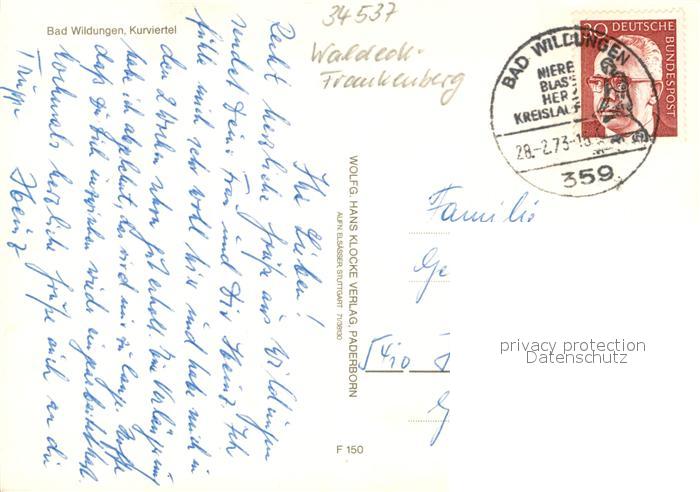 Bad Wildungen, Kurviertel
34537
Waldeck-
Frankenberg
BAD WILDUNGEN
NIERE
BLASE
HERZ
KREISLAUF
28.-2.73-18
359
30 DEUTSCHE
BUNDESPOST
Ihr Lieben!
Recht herzliche Grüße aus Wildungen
sendet Deine Frau und Dir Heinz. Ich
fühle mich sehr wohl hier und habe mich in
den 2 Wochen schon gut erholt. Eine Verlängerung
hab ich abgelehnt, das wird mir zu lange. Hoffe
daß Du Dich inzwischen wieder eingearbeitet hast.
Nochmals herzliche Grüße auch an die
Truppe Heinz
WOLFG. HANS KLOCKE VERLAG, PADERBORN
AUFN. ELSÄSSER, STUTTGART 71/3830
F 150
Familie
Ge
5410
privacy protection
Datenschutz